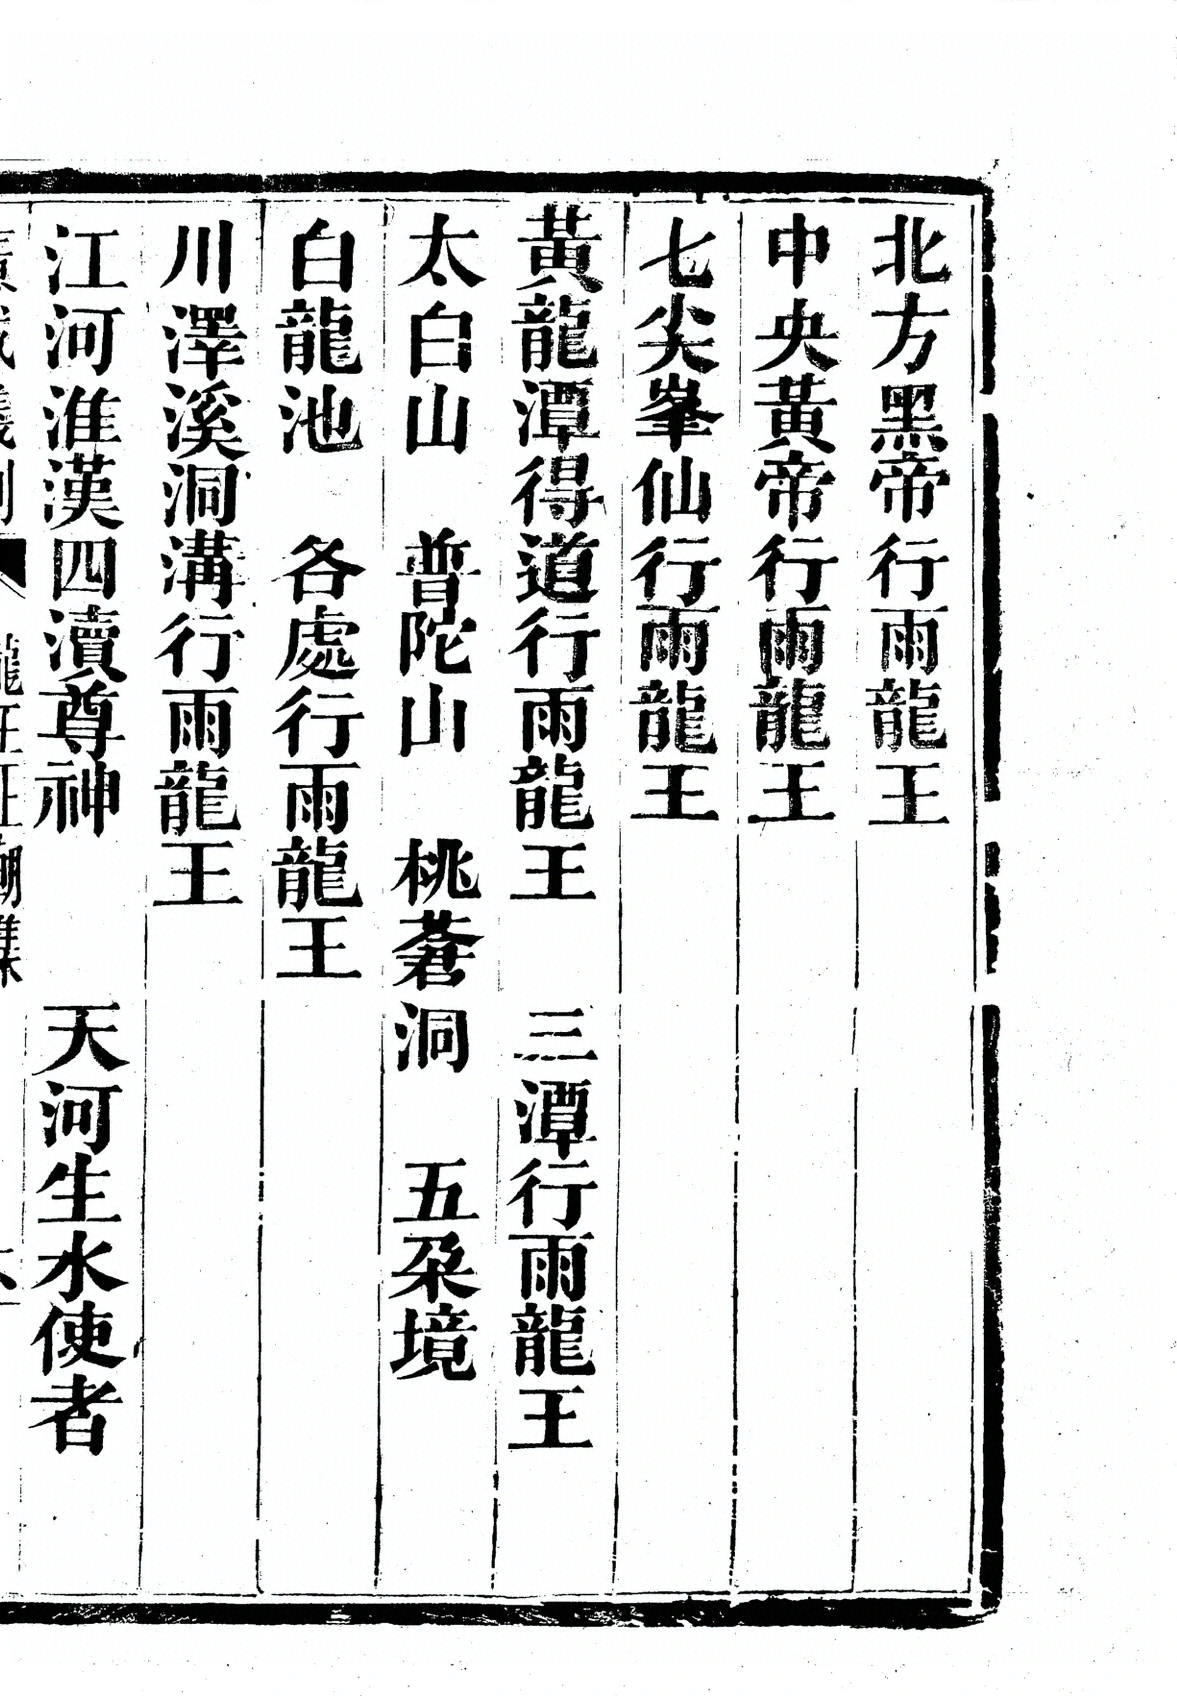 北方黑帝行雨龍王
中央黃帝行雨龍王
七尖峯仙行雨龍王
黃龍潭得道行雨龍王　三潭行雨龍王
太白山　普陀山　桃蒼洞　五朶境
白龍池　各處行雨龍王
川澤溪洞溝行雨龍王
江河淮漢四瀆尊神　天河生水使者